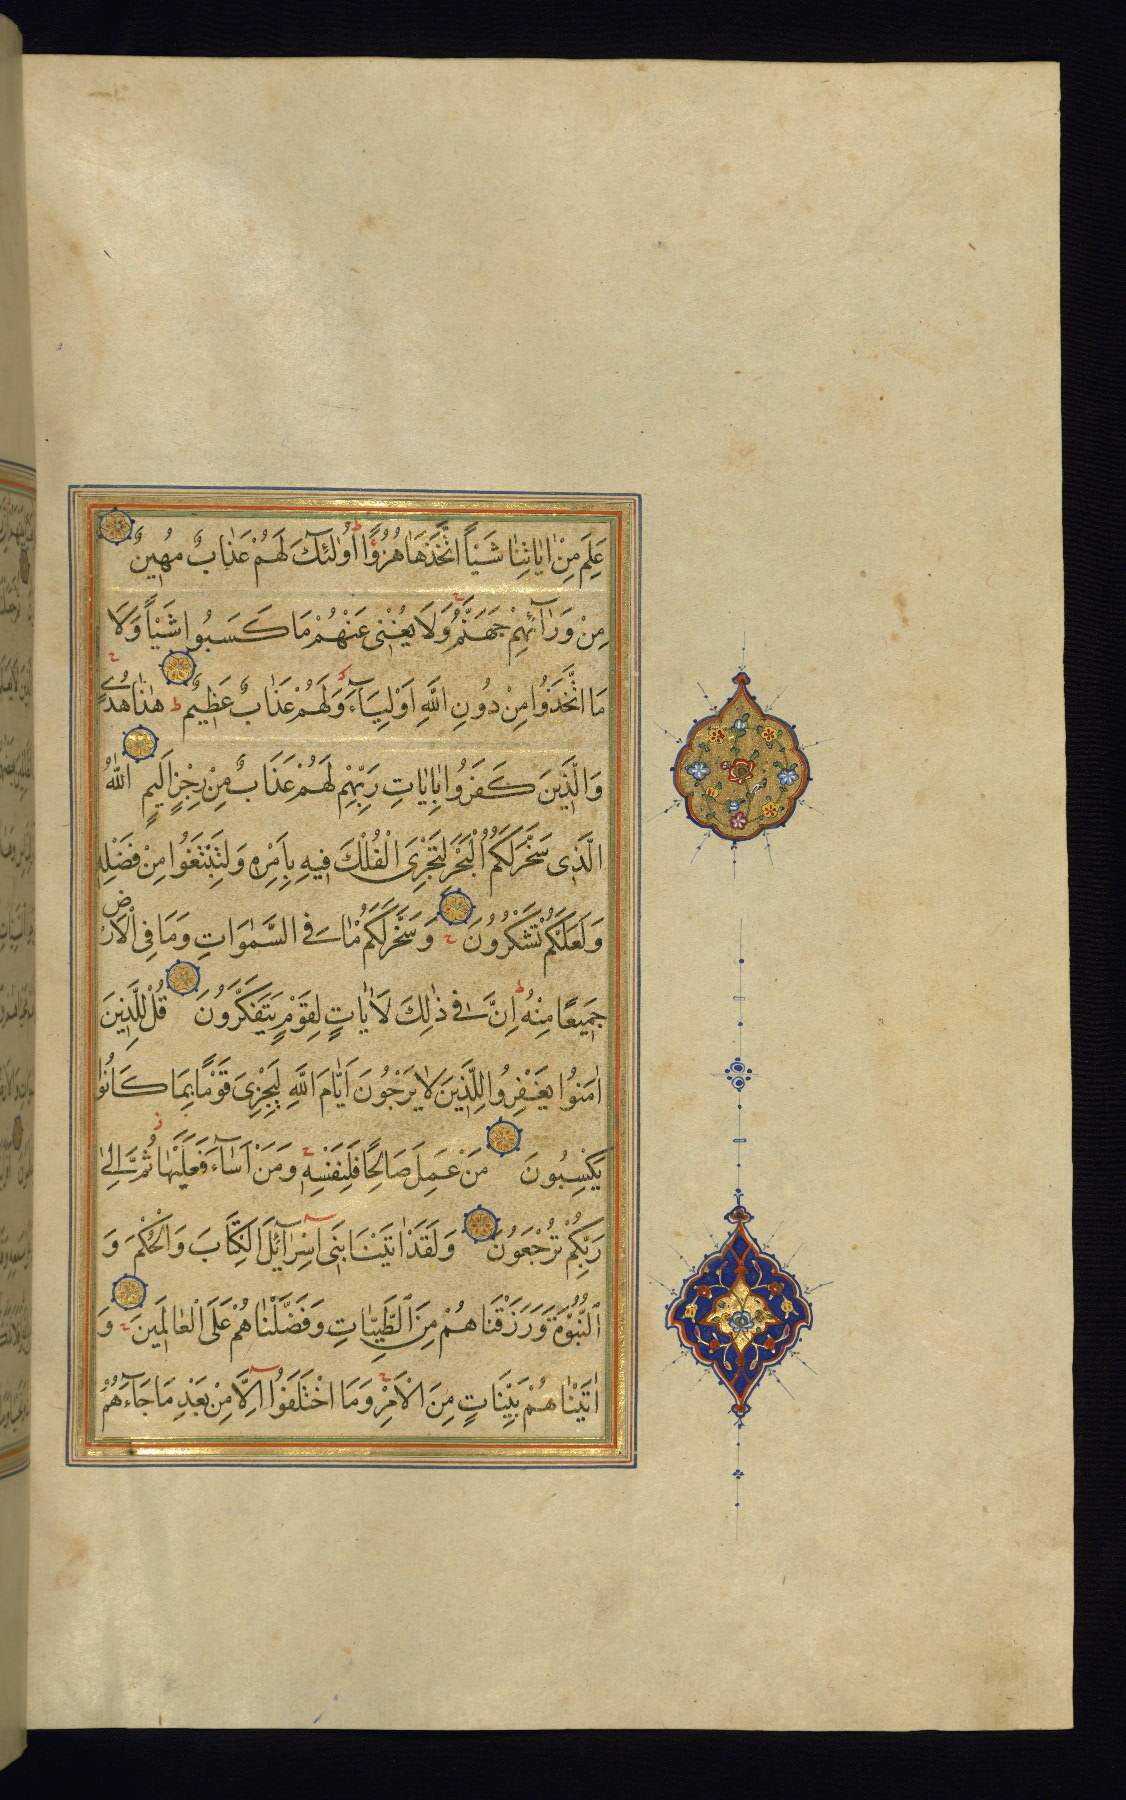 عَلِمَ مِنْ اٰيَاتِنَا شَيْاً اتَّخَذَهَا هُزُوًا اُولٰئِكَ لَهُمْ عَذَابٌ مُهِينٌ
مِنْ وَرَآئِهِمْ جَهَنَّمُ وَلَا يُغْنِى عَنْهُمْ مَا كَسَبُوا شَيْاً وَلَا
مَا اتَّخَذُوا مِنْ دُونِ اللَّهِ اَوْلِيَآءَ وَلَهُمْ عَذَابٌ عَظِيمٌ هٰذَا هُدًى
وَالَّذِينَ كَفَرُوا بِاٰيَاتِ رَبِّهِمْ لَهُمْ عَذَابٌ مِنْ رِجْزٍ اَلِيمٍ اللّٰهُ
الَّذِى سَخَّرَ لَكُمُ الْبَحْرَ لِتَجْرِىَ الْفُلْكُ فِيهِ بِاَمْرِهِ وَلِتَبْتَغُوا مِنْ فَضْلِهِ
وَلَعَلَّكُمْ تَشْكُرُونَ وَسَخَّرَ لَكُمْ مَا فِى السَّمٰوَاتِ وَمَا فِى الْاَرْضِ
جَمِيعًا مِنْهُ اِنَّ فِى ذٰلِكَ لَاٰيَاتٍ لِقَوْمٍ يَتَفَكَّرُونَ قُلْ لِلَّذِينَ
اٰمَنُوا يَغْفِرُوا لِلَّذِينَ لَا يَرْجُونَ اَيَّامَ اللَّهِ لِيَجْزِىَ قَوْمًا بِمَا كَانُوا
يَكْسِبُونَ مَنْ عَمِلَ صَالِحًا فَلِنَفْسِهِ وَمَنْ اَسَآءَ فَعَلَيْهَا ثُمَّ اِلٰى
رَبِّكُمْ تُرْجَعُونَ وَلَقَدْ اٰتَيْنَا بَنِى اِسْرَآئِلَ الْكِتَابَ وَالْحُكْمَ وَ
النُّبُوَّةَ وَرَزَقْنَاهُمْ مِنَ الطَّيِّبَاتِ وَفَضَّلْنَاهُمْ عَلَى الْعَالَمِينَ وَ
اٰتَيْنَاهُمْ بَيِّنَاتٍ مِنَ الْاَمْرِ وَمَا اخْتَلَفُوا اِلَّا مِنْ بَعْدِ مَا جَآءَهُمُ